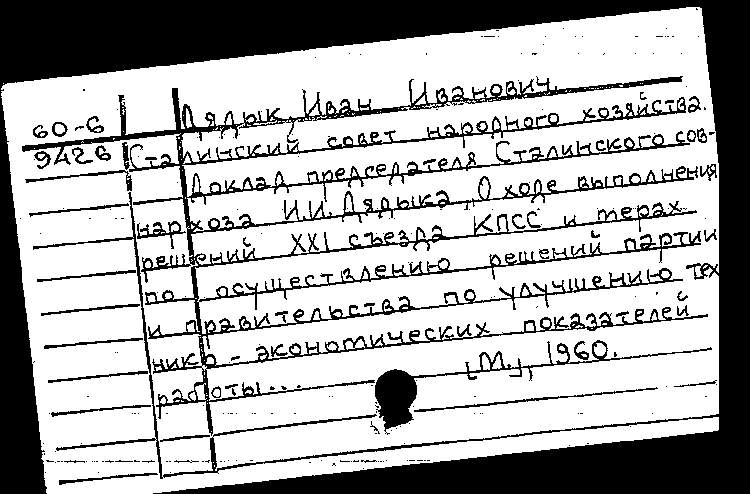 60-6 Дядык, Иван Иванович.
9426 Сталинский совет народного хозяйства.
Доклад председателя Сталинского сов-
нархоза И.И. Дядыка „О ходе выполнения
решений XXI съезда КПСС и мерах
по осуществлению решений партии
и правительства по улучшению тех
нико-экономических показателей
работы...
[М.], 1960.